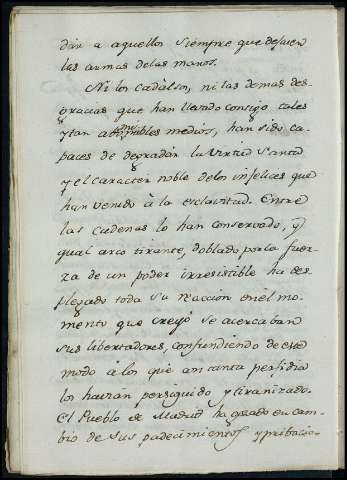 dár a aquellos siempre que dejasen
las armas de las manos.
Ni los cadalsos, ni las demas des-
gracias que han llevado consigo tales
y tan abominables medios, han sido ca-
paces de degradár la virtud santa
y el caracter noble de los infelices que
han venido á la esclavitud. Entre
las cadenas lo han conservado, y
qual arco tirante, doblado por la fuer-
za de un poder irresistible ha des-
plegado toda su reaccion en el mo-
mento que creyó se acercaban
sus libertadores, confundiendo de este
modo á los que an tanta perfidia
los havian perseguido y tiranizado.
El Pueblo de Madrid ha gozado en cam-
bio de sus padecimientos y pribacio-